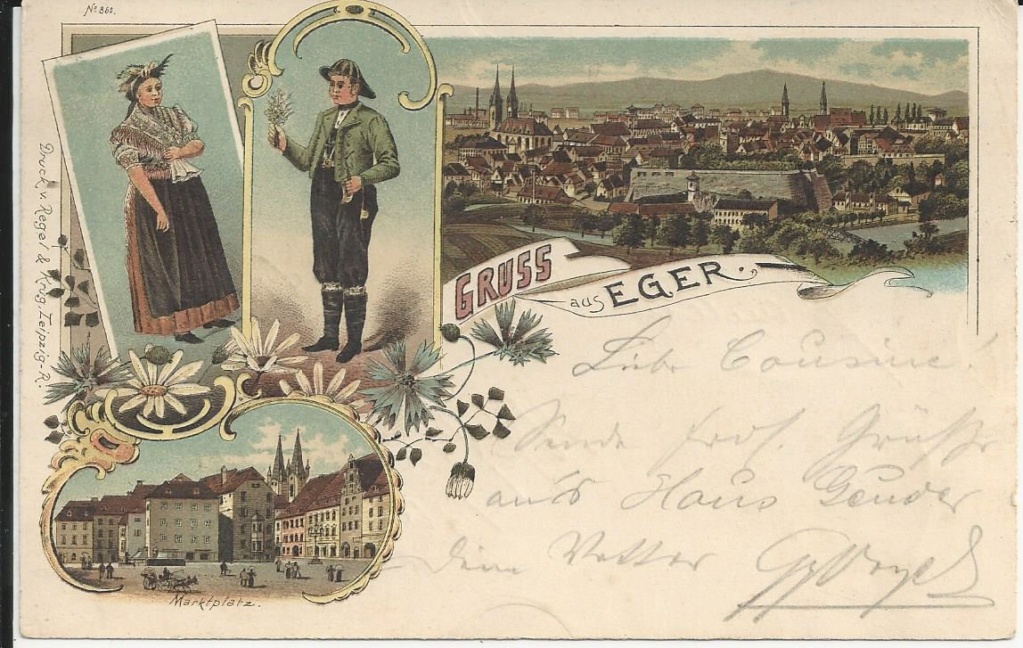 Nº 361.
Druck v. Regel & Krug, Leipzig-R.
GRUSS
aus EGER.
Marktplatz.
Liebe Cousine!
Sende Grüße
aus Haus
Dein Vetter